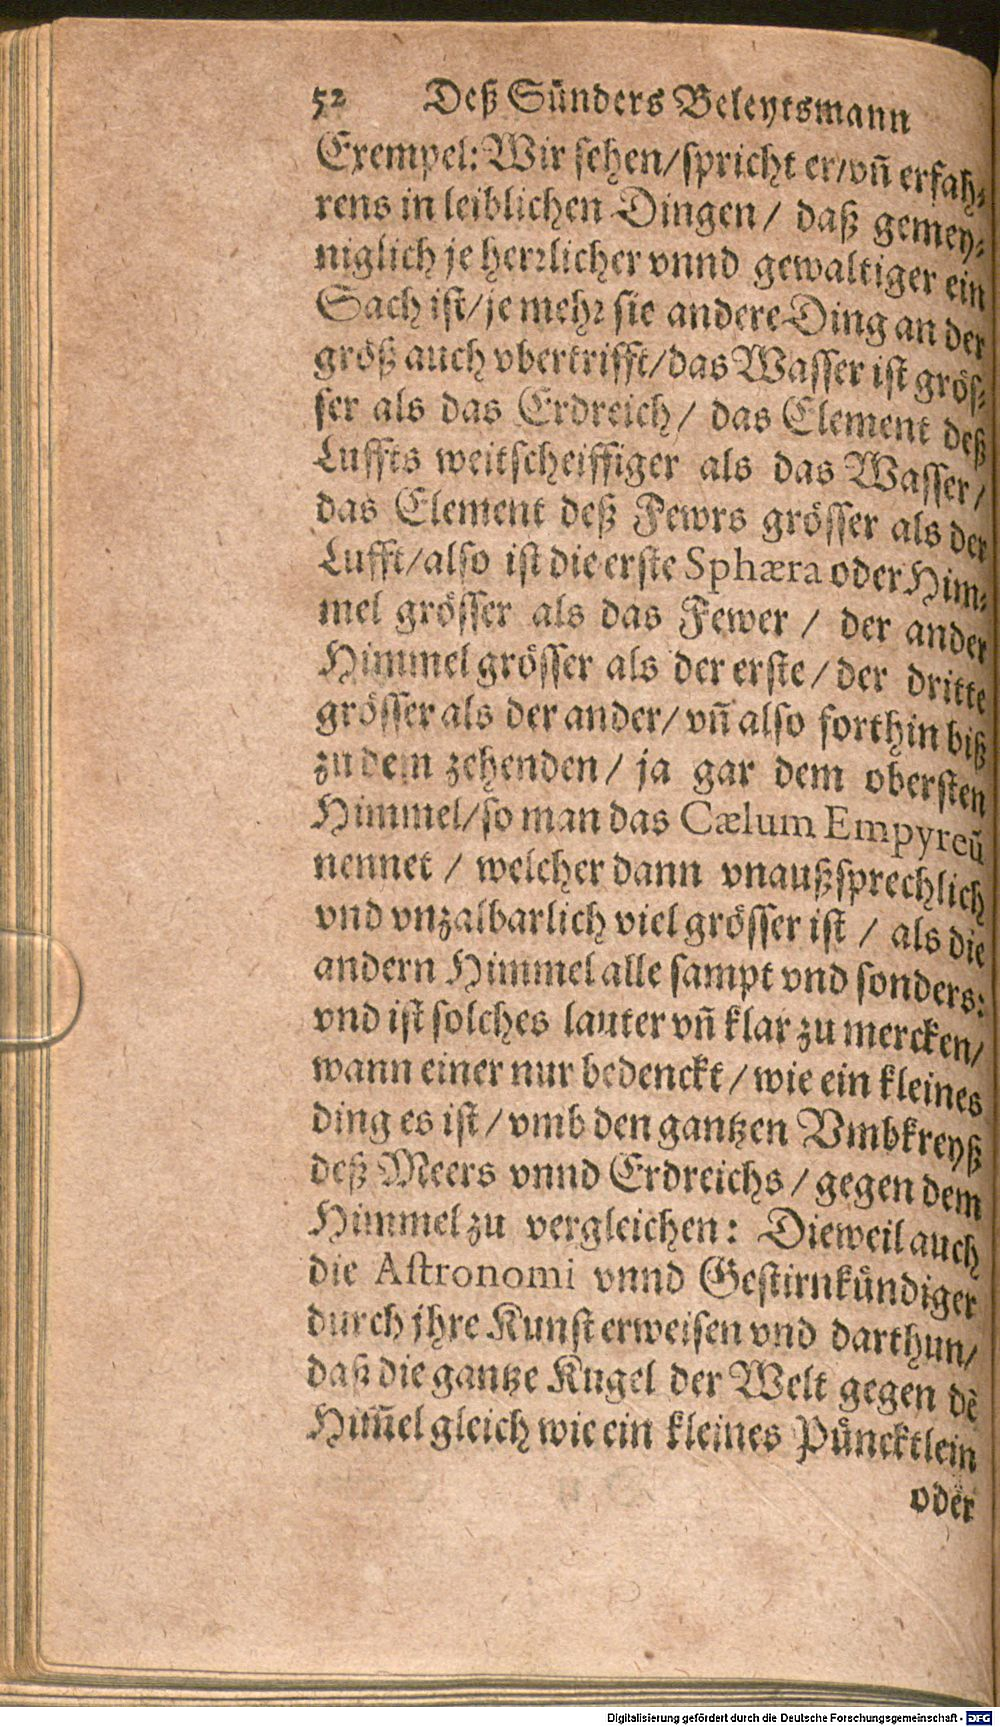 52 Deß Sünders Beleytsmann
Exempel: Wir sehen/spricht er/vñ erfah-
rens in leiblichen Dingen/ daß gemey-
niglich je herrlicher vnnd gewaltiger ein
Sach ist/je mehr sie andere Ding an der
größ auch vbertrifft/das Wasser ist grös-
ser als das Erdreich/ das Element deß
Luffts weitscheiffiger als das Wasser/
das Element deß Fewrs grösser als der
Lufft/also ist die erste Sphæra oder Him-
mel grösser als das Fewer / der ander
Himmel grösser als der erste/der dritte
grösser als der ander/vñ also forthin biß
zu dem zehenden/ ja gar dem obersten
Himmel/so man das Cælum Empyreũ
nennet / welcher dann vnaußsprechlich
vnd vnzalbarlich viel grösser ist / als die
andern Himmel alle sampt vnd sonders:
vnd ist solches lauter vñ klar zu mercken/
wann einer nur bedenckt/wie ein kleines
ding es ist/vmb den gantzen Vmbkreyß
deß Meers vnnd Erdreichs/gegen dem
Himmel zu vergleichen: Dieweil auch
die Astronomi vnnd Gestirnkündiger
durch jhre Kunst erweisen vnd darthun/
daß die gantze Kugel der Welt gegen dẽ
Him̃el gleich wie ein kleines Püncktlein
oder
Digitalisierung gefördert durch die Deutsche Forschungsgemeinschaft - DFG